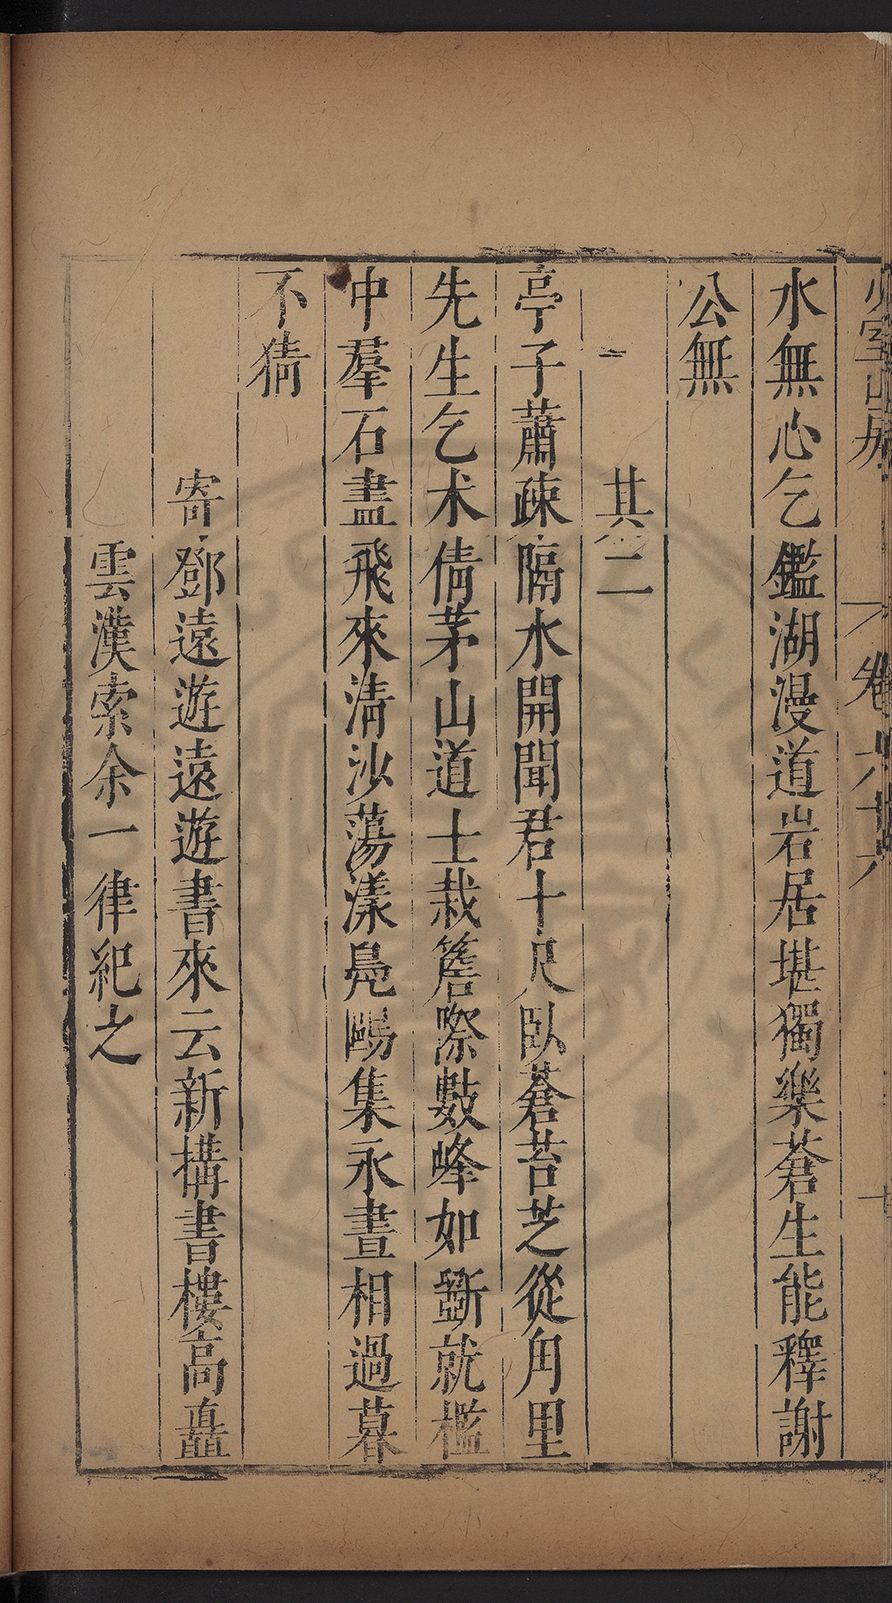 少室山房
卷六十六
十
水無心乞鑑湖漫道岩居堪獨樂蒼生能釋謝
公無
其二
亭子蕭疎隔水開聞君十尺臥蒼苔芝從甪里
先生乞术倩茅山道士栽簷際數峰如斷就檻
中羣石盡飛來淸沙蕩漾鳧鷗集永晝相過暮
不猜
寄鄧遠遊遠遊書來云新搆書樓高矗
雲漢索余一律紀之